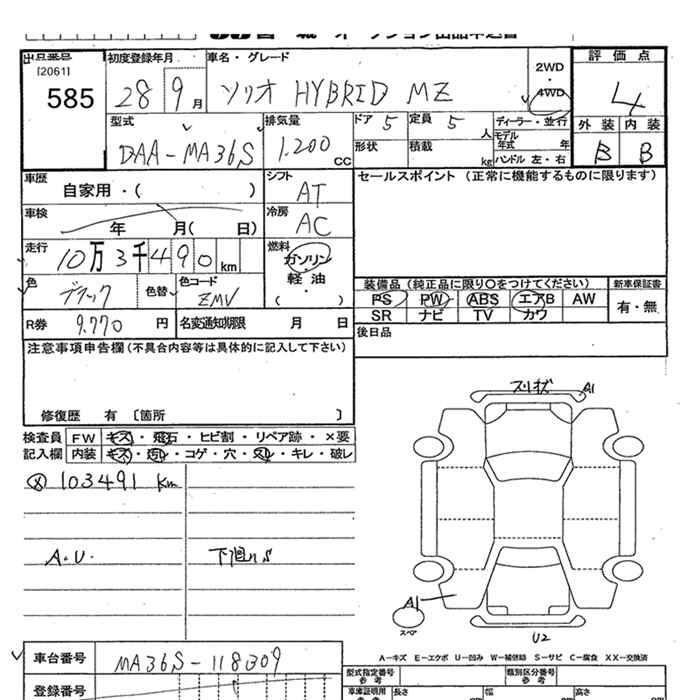 出品番号 [2061] 585
初度登録年月 28 9月
車名・グレード ソリオ HYBRID MZ
2WD・4WD
評価点 4
外装 内装
B B
型式 DAA-MA36S
排気量 1.200 CC
ドア 5 定員 5 人
形状 積載 kg
ディーラー・並行
モデル年式 年
ハンドル 左・右
車歴 自家用・( )
シフト AT
セールスポイント (正常に機能するものに限ります)
車検 年 月( 日)
冷房 AC
走行 10万3千490km
燃料 ガソリン・軽油( )
色 ブラック 色替 色コード ZMV
装備品 (純正品に限り○をつけてください) 新車保証書
PS PW ABS エアB AW 有・無
SR ナビ TV カワ
R券 9.770円 名変通知期限 月 日
後日品
注意事項申告欄 (不具合内容等は具体的に記入して下さい)
修復歴 有 〔箇所 〕
検査員 FW キズ・飛石・ヒビ割・リペア跡・×要
記入欄 内装 キズ・汚レ・コゲ・穴・スレ・キレ・破レ
103491 Km
A.U. 下廻りS
スリキズ A1
A1
スペア
U2
A-キズ E-エクボ U-凹み W-補修跡 S-サビ C-腐食 XX-交換済
車台番号 MA36S-118309
登録番号
型式指定番号 参考 類別区分番号 参考
車庫証明用 参考 長さ 幅 高さ